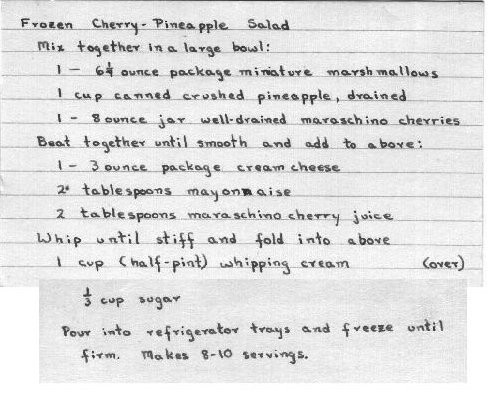 Frozen Cherry-Pineapple Salad
Mix together in a large bowl:
1 - 6¼ ounce package miniature marshmallows
1 cup canned crushed pineapple, drained
1 - 8 ounce jar well-drained maraschino cherries
Beat together until smooth and add to above:
1 - 3 ounce package cream cheese
2 tablespoons mayonnaise
2 tablespoons maraschino cherry juice
Whip until stiff and fold into above
1 cup (half-pint) whipping cream (over)
⅓ cup sugar
Pour into refrigerator trays and freeze until
firm. Makes 8-10 servings.